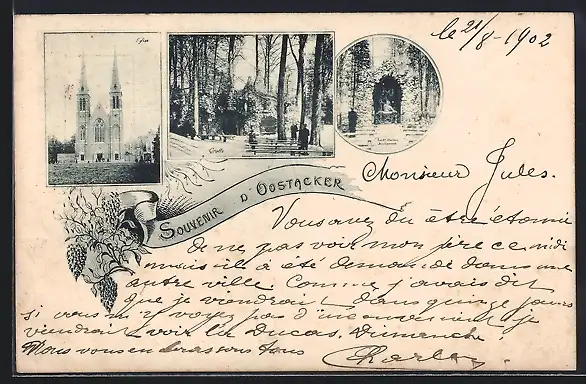 Eglise
le 21/8 - 1902
Grotte
Monsieur Jules.
SOUVENIR D'OOSTACKER
Vous avez dû être étonné
de ne pas voir mon père ce midi
mais il a été demandé dans une
autre ville. Comme j'avais dit
que je viendrait dans quinze jours
si vous n'y voyez pas d'inconvenient je
viendrait voir la Ducas. Dimanche.
Nous vous embrassons tous